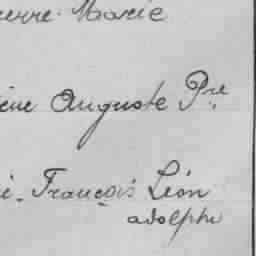 erre Marie
ène Auguste Pre
é. François Léon
adolphe